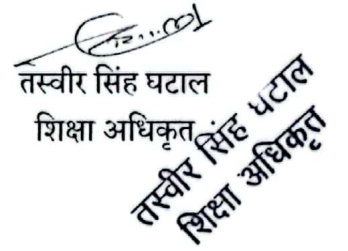 तस्वीर सिंह घटाल
शिक्षा अधिकृत
तस्वीर सिंह घटाल
शिक्षा अधिकृत